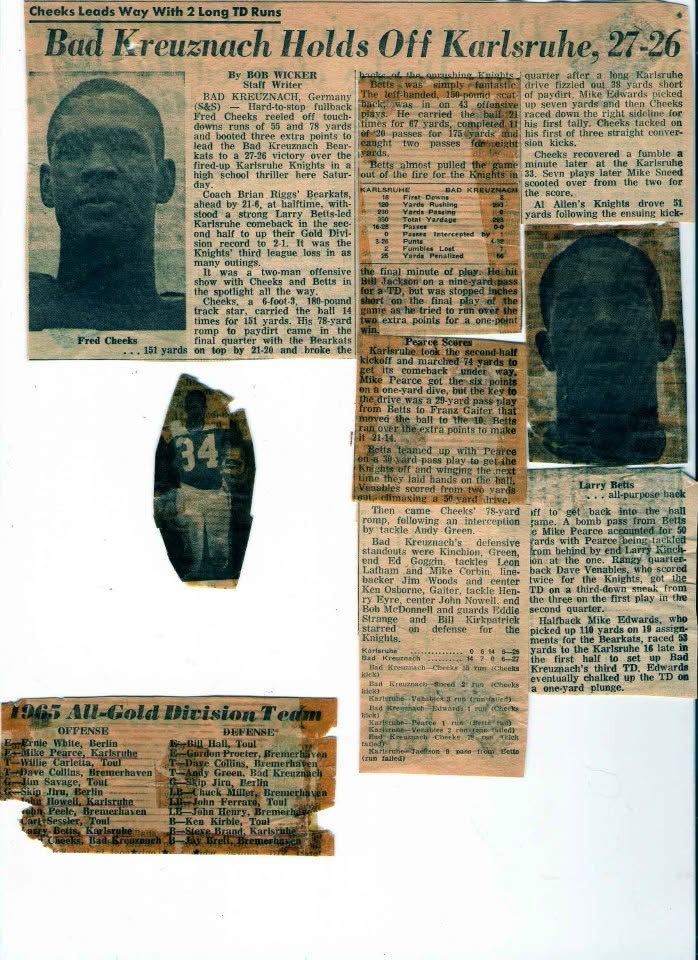 Cheeks Leads Way With 2 Long TD Runs
Bad Kreuznach Holds Off Karlsruhe, 27-26
Fred Cheeks
. . . 151 yards
By BOB WICKER
Staff Writer
BAD KREUZNACH, Germany
(S&S) — Hard-to-stop fullback
Fred Cheeks reeled off touch-
downs runs of 55 and 78 yards
and booted three extra points to
lead the Bad Kreuznach Bear-
kats to a 27-26 victory over the
fired-up Karlsruhe Knights in a
high school thriller here Satur-
day.
Coach Brian Riggs' Bearkats,
ahead by 21-6, at halftime, with-
stood a strong Larry Betts-led
Karlsruhe comeback in the sec-
ond half to up their Gold Divi-
sion record to 2-1. It was the
Knights' third league loss in as
many outings.
It was a two-man offensive
show with Cheeks and Betts in
the spotlight all the way.
Cheeks, a 6-foot-3, 180-pound
track star, carried the ball 14
times for 151 yards. His 78-yard
romp to paydirt came in the
final quarter with the Bearkats
on top by 21-20 and broke the
backs of the onrushing Knights.
Betts was simply fantastic.
The left-handed, 150-pound scat
back was in on 43 offensive
plays. He carried the ball 21
times for 67 yards, completed 11
of 20 passes for 175 yards and
caught two passes for eight
yards.
Betts almost pulled the game
out of the fire for the Knights in
KARLSRUHE BAD KREUZNACH
First Downs
Yards Rushing
Yards Passing
Total Yardage
Passes
Passes Intercepted by
Punts
Fumbles Lost
Yards Penalized
the final minute of play. He hit
Bill Jackson on a nine-yard pass
for a TD, but was stopped inches
short on the final play of the
game as he tried to run over the
two extra points for a one-point
win.
Pearce Scores
Karlsruhe took the second-half
kickoff and marched 74 yards to
get its comeback under way.
Mike Pearce got the six points
on a one-yard dive, but the key to
the drive was a 29-yard pass play
from Betts to Franz Gaiter that
moved the ball to the 10. Betts
ran over the extra points to make
it 21-14.
Betts teamed up with Pearce
on a 30 yard pass play to get the
Knights off and winging the next
time they laid hands on the ball.
Venables scored from two yards
out, climaxing a 50-yard drive.
Then came Cheeks' 78-yard
romp, following an interception
by tackle Andy Green.
Bad Kreuznach's defensive
standouts were Kinchion, Green,
end Ed Goggin, tackles Leon
Latham and Mike Corbin, line-
backer Jim Woods and center
Ken Osborne, Gaiter, tackle Hen-
ry Eyre, center John Nowell, end
Bob McDonnell and guards Eddie
Strange and Bill Kirkpatrick
starred on defense for the
Knights.
Karlsruhe ................ 0 6 14 6—26
Bad Kreuznach ............ 14 7 0 6—27
kick)
Bad Kreuznach—Sneed 2 run (Cheeks
kick)
Karlsruhe—Venables 3 run (run failed)
Bad Kreuznach—Edwards 1 run (Cheeks
kick)
Karlsruhe—Pearce 1 run
Karlsruhe—Venables 2 run (run failed)
Bad Kreuznach—Cheeks 78 run (kick
failed)
Karlsruhe—Jackson 9 pass from Betts
(run failed)
quarter after a long Karlsruhe
drive fizzled out 38 yards short
of paydirt. Mike Edwards picked
up seven yards and then Cheeks
raced down the right sideline for
his first tally. Cheeks tacked on
his first of three straight conver-
sion kicks.
Cheeks recovered a fumble a
minute later at the Karlsruhe
33. Sevn plays later Mike Sneed
scooted over from the two for
the score.
Al Allen's Knights drove 51
yards following the ensuing kick-
Larry Betts
. . . all-purpose back
off to get back into the ball
game. A bomb pass from Betts
to Mike Pearce accounted for 50
yards with Pearce being tackled
from behind by end Larry Kinch-
ion at the one. Rangy quarter-
back Dave Venables, who scored
twice for the Knights, got the
TD on a third-down sneak from
the three on the first play in the
second quarter.
Halfback Mike Edwards, who
picked up 110 yards on 19 assign-
ments for the Bearkats, raced 53
yards to the Karlsruhe 16 late in
the first half to set up Bad
Kreuznach's third TD. Edwards
eventually chalked up the TD on
a one-yard plunge.
34
1965 All-Gold Division Team
OFFENSE
E—Ernie White, Berlin
E—Mike Pearce, Karlsruhe
T—Willie Carletta, Toul
T—Dave Collins, Bremerhaven
Jim Savage, Toul
Skip Jiru, Berlin
John Howell, Karlsruhe
John Peele, Bremerhaven
Carl Sessler, Toul
Larry Betts, Karlsruhe
Cheeks, Bad Kreuznach
DEFENSE
E—Bill Hall, Toul
E—Gordon Procter, Bremerhaven
T—Dave Collins, Bremerhaven
T—Andy Green, Bad Kreuznach
G—Skip Jiru, Berlin
LB—Chuck Miller, Bremerhaven
LB—John Ferraro, Toul
LB—John Henry, Bremerhaven
B—Ken Kirbie, Toul
B—Steve Brand, Karlsruhe
B—Jay Brell, Bremerhaven